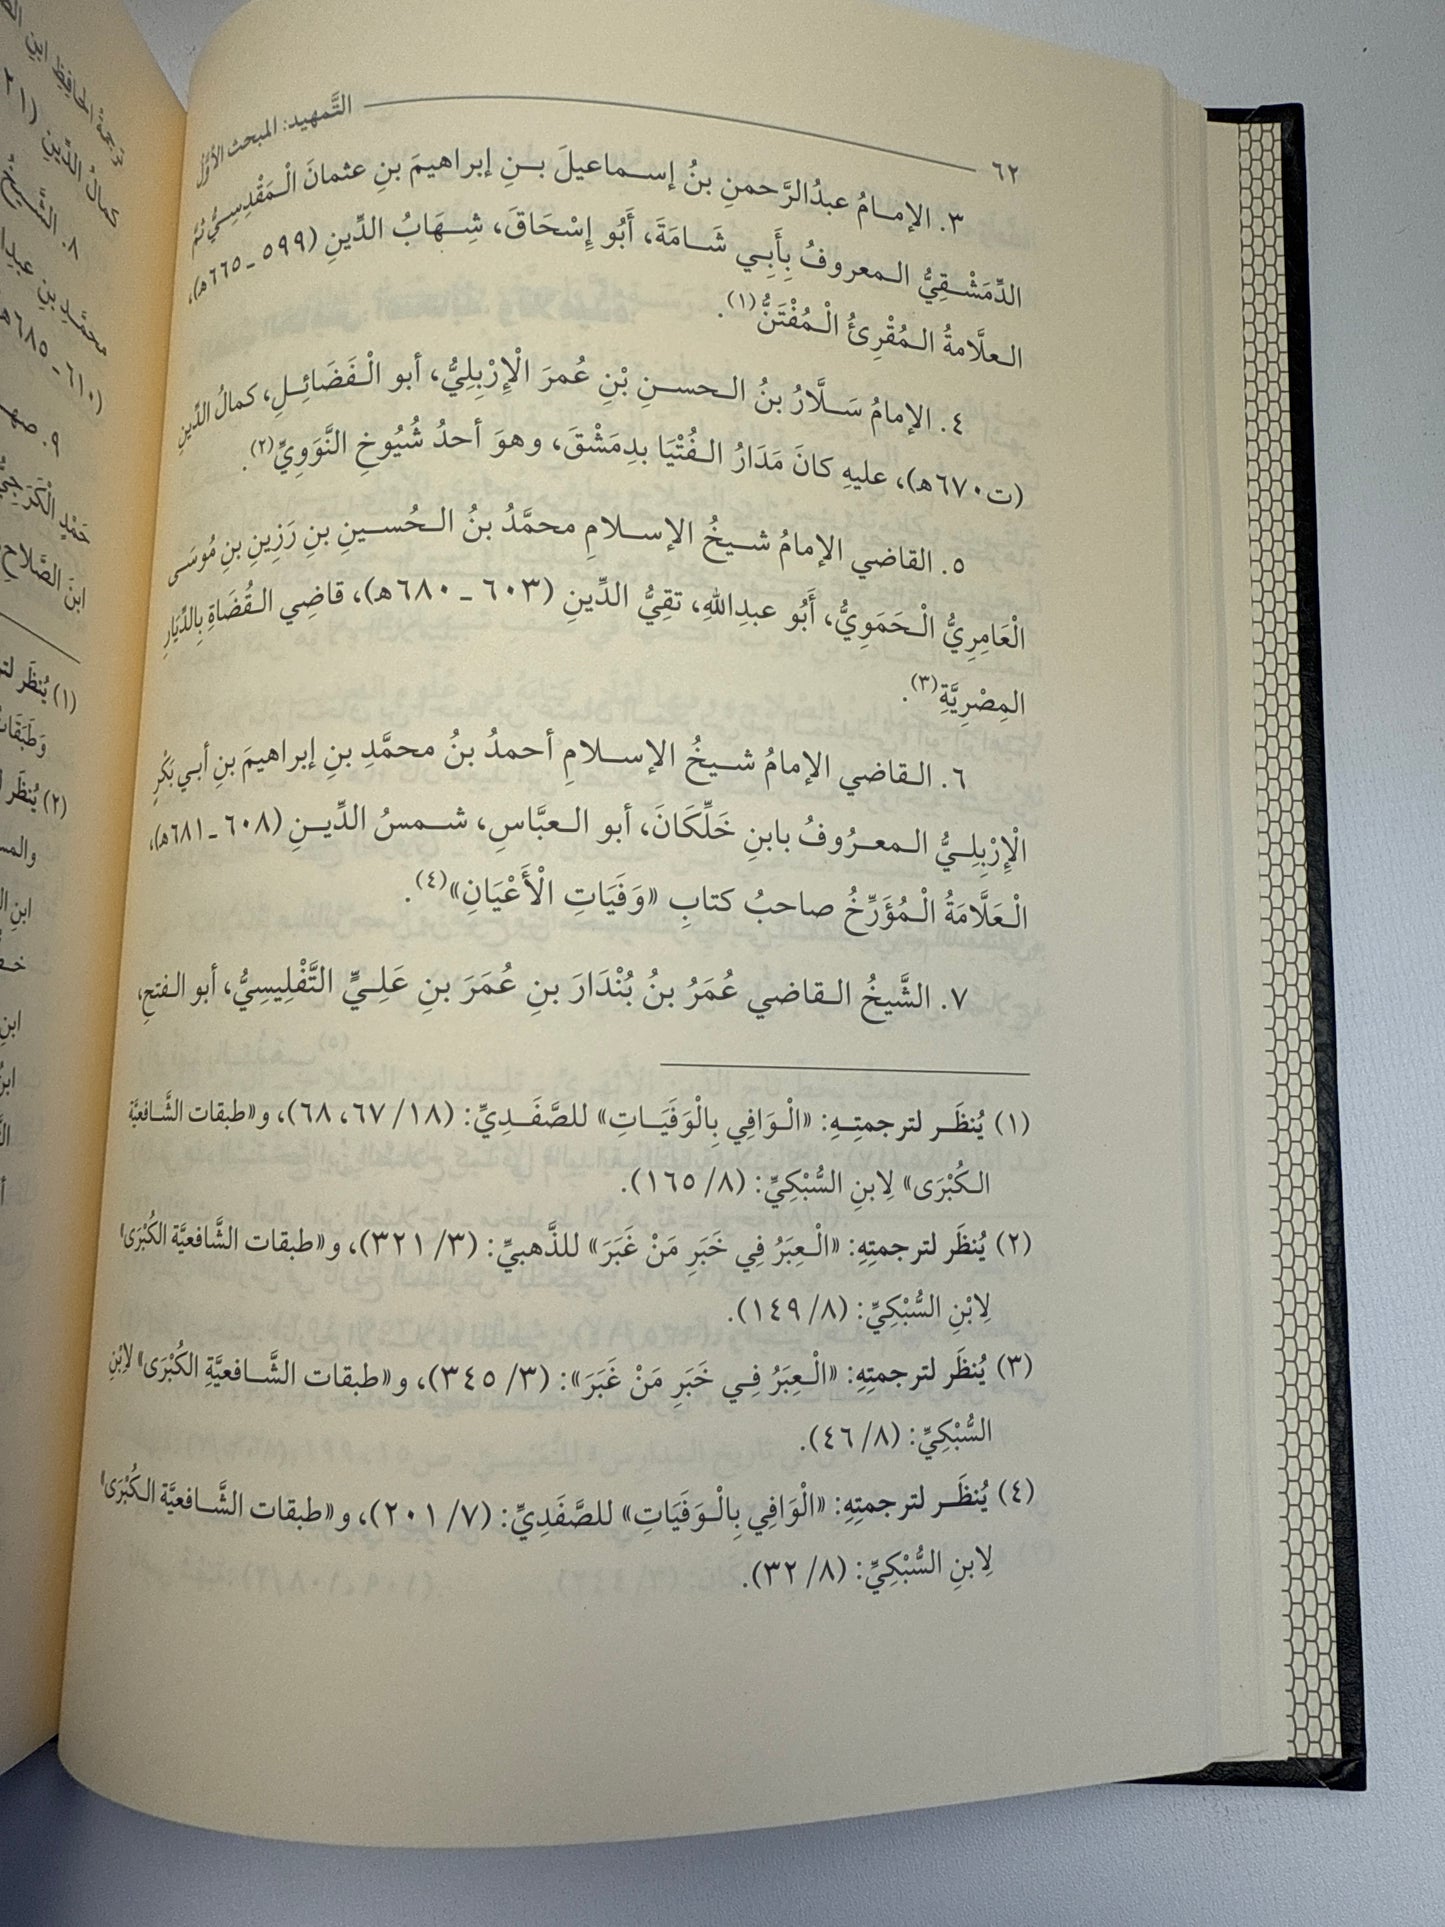 ٦٢ التَّمهيد: المبحث الأوَّلُ
٣. الإمامُ عبدُالرَّحمنِ بنُ إسماعيلَ بنِ إبراهيمَ بنِ عثمانَ الْمَقْدِسِيُّ ثمَّ
الدِّمَشْقِيُّ المعروفُ بِأَبِي شَامَةَ، أَبُو إِسْحَاقَ، شِهَابُ الدِّينِ (٥٩٩ ـ ٦٦٥هـ)،
العلَّامةُ المُقْرِئُ الْمُفْتَنُّ(١).
٤. الإمامُ سَلَّارُ بنُ الحسنِ بْنِ عُمرَ الْإِرْبِلِيُّ، أبو الْفَضَائِلِ، كمالُ الدِّينِ
(ت٦٧٠هـ)، عليهِ كانَ مَدَارُ الفُتْيَا بدِمَشْقَ، وهوَ أحدُ شُيُوخِ النَّوَوِيِّ(٢).
٥. القاضي الإمامُ شيخُ الإسلامِ محمَّدُ بنُ الحُسينِ بنِ رَزِينِ بنِ مُوسَى
الْعَامِرِيُّ الْحَمَوِيُّ، أَبُو عبدِاللهِ، تقِيُّ الدِّينِ (٦٠٣ ـ ٦٨٠هـ)، قاضِي القُضَاةِ بِالدِّيَارِ
المِصْرِيَّةِ(٣).
٦. القاضي الإمامُ شيخُ الإسلامِ أحمدُ بنُ محمَّدِ بنِ إبراهيمَ بنِ أبي بَكْرٍ
الْإِرْبِلِيُّ المعرُوفُ بابنِ خَلِّكَانَ، أبو العبَّاسِ، شمسُ الدِّينِ (٦٠٨ ـ ٦٨١هـ)،
الْعَلَّامَةُ الْمُؤَرِّخُ صاحبُ كتابِ «وَفَيَاتِ الْأَعْيَانِ»(٤).
٧. الشَّيخُ القاضي عُمَرُ بنُ بُنْدَارَ بنِ عُمَرَ بنِ عَلِيٍّ التَّفْلِيسِيُّ، أبو الفتحِ،
(١) يُنظَر لترجمتِهِ: «الْوَافِي بِالْوَفَيَاتِ» للصَّفَدِيِّ: (١٨/ ٦٧، ٦٨)، و«طبقات الشَّافعيَّة
الكُبْرَى» لِابنِ السُّبْكِيِّ: (٨/ ١٦٥).
(٢) يُنظَر لترجمتِهِ: «الْعِبَرُ فِي خَبَرِ مَنْ غَبَرَ» للذَّهبيِّ: (٣/ ٣٢١)، و«طبقات الشَّافعيَّة الكُبْرَى»
لِابْنِ السُّبْكِيِّ: (٨/ ١٤٩).
(٣) يُنظَر لترجمتِهِ: «الْعِبَرُ فِي خَبَرِ مَنْ غَبَرَ»: (٣/ ٣٤٥)، و«طبقات الشَّافعيَّةِ الكُبْرَى» لِابْنِ
السُّبْكِيِّ: (٨/ ٤٦).
(٤) يُنظَر لترجمتِهِ: «الْوَافِي بِالْوَفَيَاتِ» للصَّفَدِيِّ: (٧/ ٢٠١)، و«طبقات الشَّافعيَّة الكُبْرَى»
لِابنِ السُّبْكِيِّ: (٨/ ٣٢).
تَرجمةُ الحافِظِ ابنِ
كمالُ الدِّينِ
٨. الشَّيخُ
محمَّدِ بنِ عبدِ
(٦١٠ ـ ٦٨٥هـ
٩.
حَمْدٍ الْكَرَجِيُّ
ابنَ الصَّلاحِ
(١) يُنظَر
(٢) يُنظَر